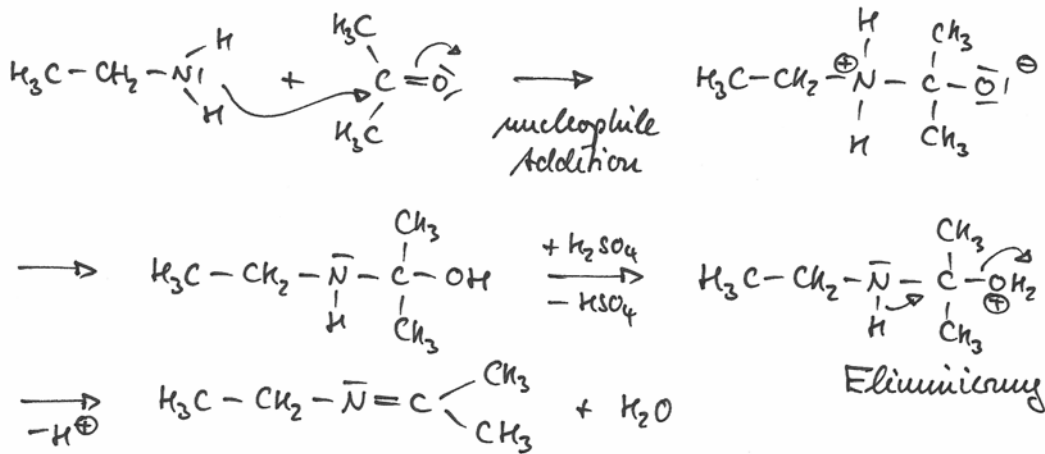 H₃C–CH₂–N̄(H)(H) + (H₃C)(H₃C)C=O̲| → H₃C–CH₂–N⊕(H)(H)–C(CH₃)(CH₃)–O̲̅|⊖
nucleophile
Addition
→ H₃C–CH₂–N̄(H)–C(CH₃)(CH₃)–OH + H₂SO₄ / − HSO₄ → H₃C–CH₂–N̄(H)–C(CH₃)(CH₃)–OH₂⊕
Eliminierung
→ −H⊕ H₃C–CH₂–N̄=C(CH₃)(CH₃) + H₂O